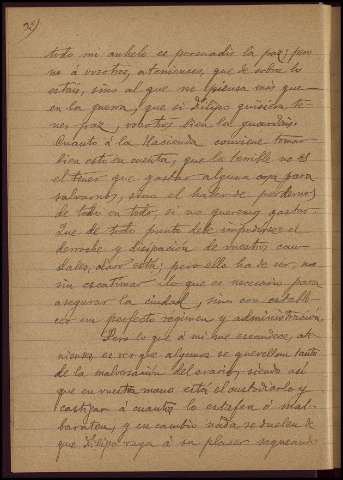 29)
todo mi anhelo es persuadir la paz; pero
no á vosotros, atenienses, que de sobra lo
estáis, sino al que no piensa más que
en la guerra, que si Filipo quisiera te-
ner paz, vosotros bien la guardáis.
Cuanto á la Hacienda conviene tomar
bien esto en cuenta, que lo terrible no es
el tener que gastar alguna cosa para
salvarnos, sino el haber de perdernos
de todo en todo, si no queremos gastar.
Que de todo punto debe impedirse el
derroche y disipación de nuestros cau-
dales, claro está; pero ello ha de ser, no
sin escatimar lo que es necesario para
asegurar la ciudad, sino con estable-
cer un perfecto régimen y administración.
Pero lo que á mí me escandece, ate-
nienses es ver que algunos se querellan tanto
de la malversación del erario, siendo así
que en vuestra mano está el custodiarlo y
castigar á cuantos lo estafen ó mal-
baraten, y en cambio nada se duelen de
que Filipo vaya á su placer saqueando